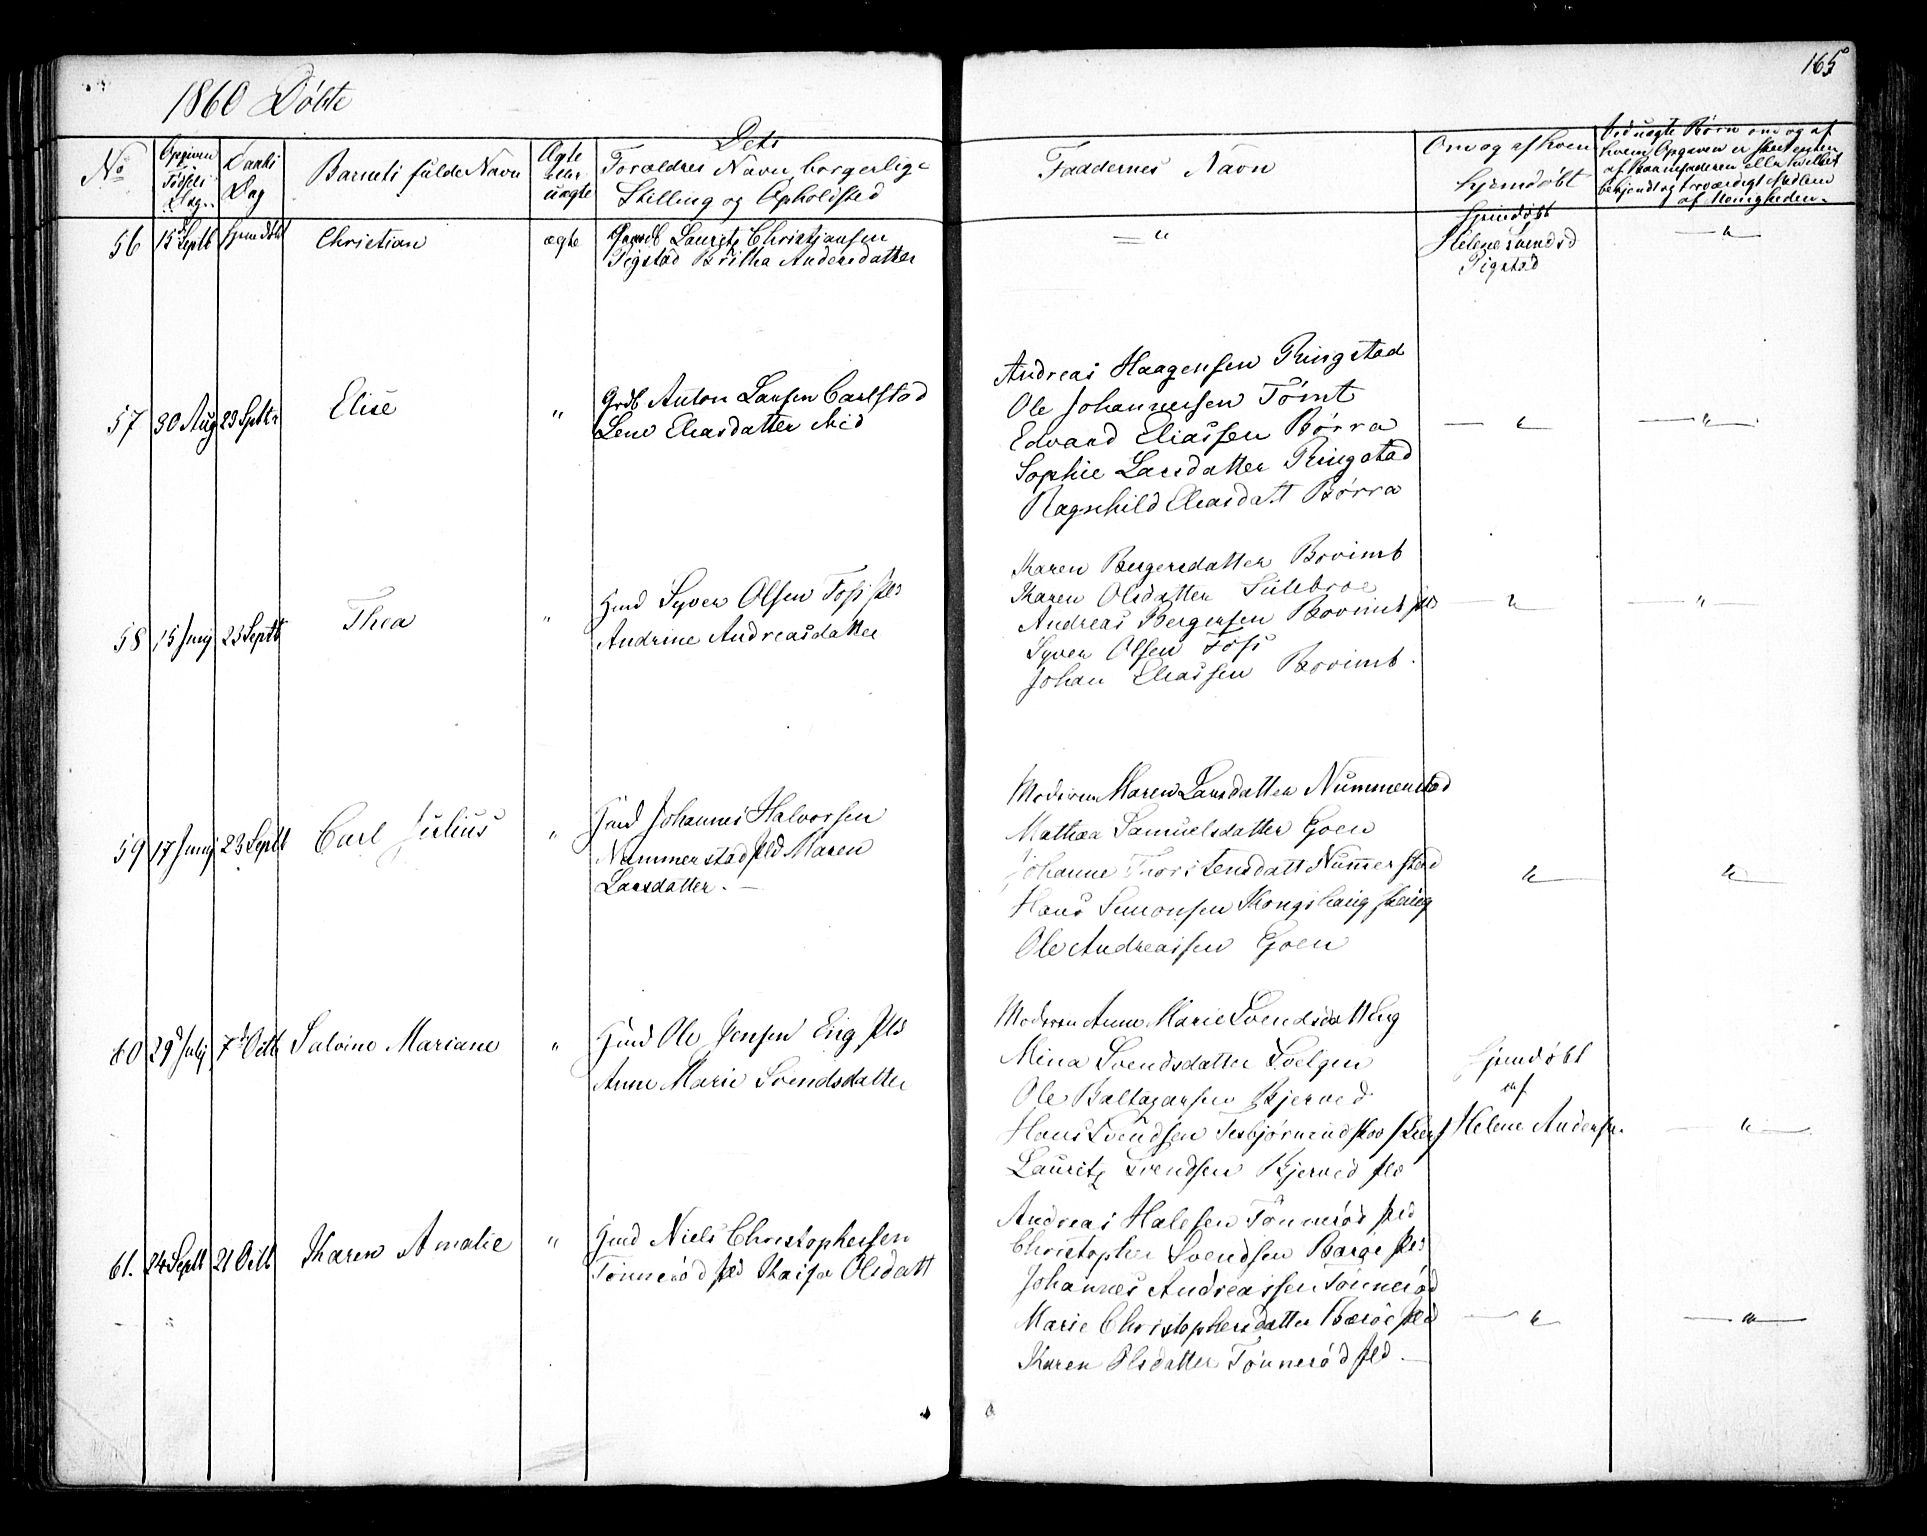 165
1860 Døbte
No
Opgiven Fødsels Dag
Daabs Dag
Barnets fulde Navn
Ægte eller uægte
Dets Forældres Navn, borgerlige Stilling og Opholdsted
Faddernes Navn
Om og af hvem hjemdøbt
Ved uægte Børn om og af hvem Opgaven er skeet enten af Barnefaderen eller hvilket bekjendt og troværdigt Medlem af Menigheden.
56 15 Septb hjemdøbt Christian ægte Lauritz Christjansen
Pigstad Britha Andersdatter
— " Hjemdøbt
Helene Svendsd
Pigstad
— " —
57 30 Aug 23 Septbr Elise " Grdb Anton Larsen Carlstad
Lene Eliasdatter ibid
Andreas Haagensen Ringstad
Ole Johannersen Tomt
Edvard Eliassen Børra — " — — " —
Sophie Larsdatter Ringstad
Ragnhild Eliasdatt Børra
58 15 Junj 23 Septb Thea " Hmd Syver Olsen Foss Pld
Andrine Andreasdatter
Karen Bergersdatter Bovimb
Karen Olsdatter
Andreas Bergersen Bovimb Pld — " — — " —
Syver Olsen Foss
Johan Eliassen Bovimb.
59 17 Junj 23 Septb Carl Julius " Hmd Johannes Halvorsen
Nummerstad Pld Maren
Larsdatter. —
Moderen Maren Larsdatter Nummerstad
Mathea Samuelsdatter Goen
Johanne Thorstensdatt Nummerstad — " — — " —
Hans Simonsen Kongshaug
Ole Andreassen Goen
60 29 Julj 7d Octb Salvine Mariane " Hmd Ole Jensen Eng Pld
Anne Marie Svendsdatter
Moderen Anne Marie Svendsdatt Eng
Mina Svendsdatter Hjemdøbt
af
Ole Baltazarsen Kjerved
Hans Svendsen Helene Andersen. — " —
Lauritz Svendsen Kjerved Pld
61. 24 Septb 21 Octb Karen Amalie " Hmd Niels Christophersen
Tønnerød Pld Kaisa Olsdatt
Andreas Halesen Tønnerød Pld
Christopher Svendsen Barøe Pld
Johannes Andreassen Tønnerød
Marie Christophersdatter Barøe Pld — " — — " —
Karen Olsdatter Tønnerød Pld. —